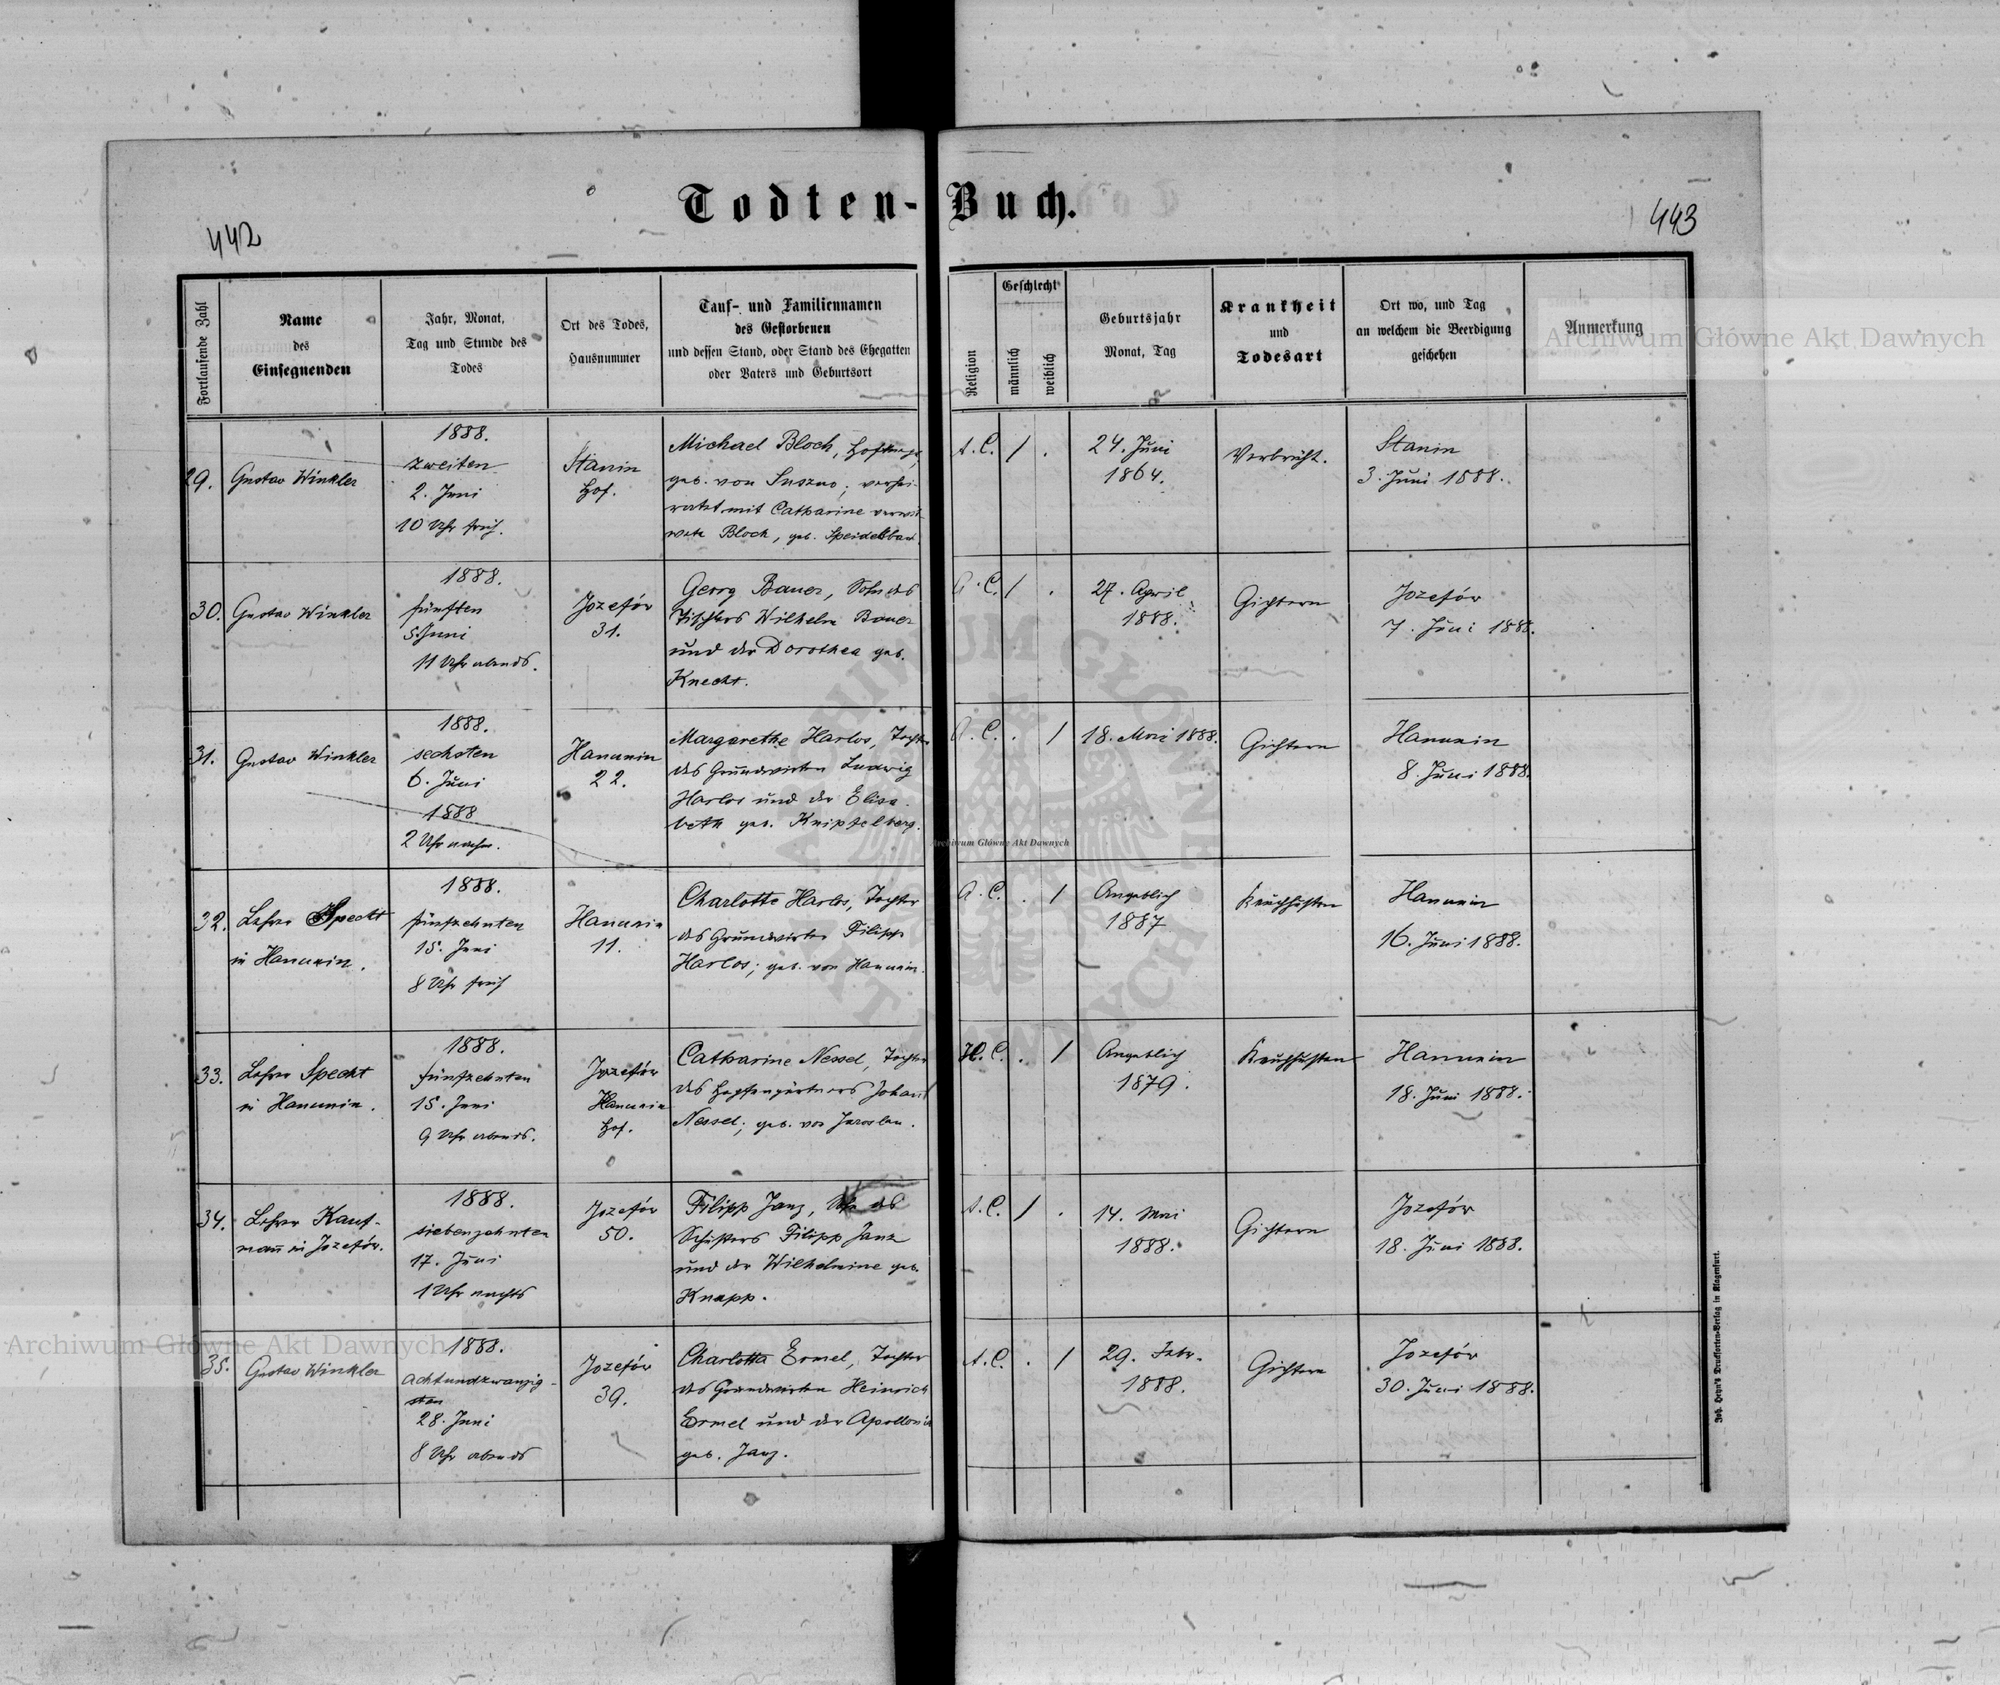 Todten-Buch.
442
443
Fortlaufende Zahl
Name
des
Einsegnenden
Jahr, Monat,
Tag und Stunde des
Todes
Ort des Todes,
Hausnummer
Tauf- und Familiennamen
des Gestorbenen
und dessen Stand, oder Stand des Ehegatten
oder Vaters und Geburtsort
Religion
Geschlecht
männlich
weiblich
Geburtsjahr
Monat, Tag
Krankheit
und
Todesart
Ort wo, und Tag
an welchem die Beerdigung
geschehen
Anmerkung
29.
Gustav Winkler
1888.
zweiten
2. Juni
10 Uhr früh.
Stanin
Hof.
Michael Bloch,
geb. von Suszno; verhei-
ratet mit Catharine verwit-
wete Bloch, geb.
A. C.
/
.
24. Juni
1864.
Stanin
3. Juni 1888.
30.
Gustav Winkler
1888.
fünften
5. Juni
11 Uhr abends.
Jozefów
31.
Georg Bauer, Sohn des
Tischlers Wilhelm Bauer
und der Dorothea geb.
Knecht.
A. C.
/
.
27. April
1888.
Gichtern
Jozefów
7. Juni 1888.
31.
Gustav Winkler
1888.
sechsten
6. Juni
1888
2 Uhr nachm.
Hanunin
22.
Margarethe Harlos, Tochter
des Grundwirten Ludwig
Harlos und der Elisa-
beth geb. Knipfelberg.
A. C.
.
/
18. Mai 1888.
Gichtern
Hanunin
8. Juni 1888.
32.
Lehrer Specht
in Hanunin.
1888.
fünfzehnten
15. Juni
8 Uhr früh
Hanunin
11.
Charlotte Harlos, Tochter
des Grundwirten Filipp
Harlos; geb. von Hanunin.
A. C.
.
/
Angeblich
1887
Keuchhusten
Hanunin
16. Juni 1888.
33.
Lehrer Specht
in Hanunin.
1888.
fünfzehnten
15. Juni
9 Uhr abends.
Jozefów
Hanunin
Hof.
Catharine Nessel, Tochter
des Hopfengärtners Johann
Nessel; geb. von Jaroslau.
H. C.
.
/
Angeblich
1879.
Keuchhusten
Hanunin
18. Juni 1888.
34.
Lehrer Kauf-
mann in Jozefów.
1888.
siebenzehnten
17. Juni
1 Uhr nachts
Jozefów
50.
Filipp Janz, Sohn des
Schusters Filipp Janz
und der Wilhelmine geb.
Knapp.
A. C.
/
.
14. Mai
1888.
Gichtern
Jozefów
18. Juni 1888.
35.
Gustav Winkler
1888.
achtundzwanzig-
sten
28. Juni
8 Uhr abends
Jozefów
39.
Charlotta Ermel, Tochter
des Grundwirten Heinrich
Ermel und der Apollonia
geb. Janz.
A. C.
.
/
29. Febr.
1888.
Gichtern
Jozefów
30. Juni 1888.
Joh. Heyn's Drucksorten-Verlag in Klagenfurt.
Archiwum Główne Akt Dawnych
Archiwum Główne Akt Dawnych
Archiwum Główne Akt Dawnych
ARCHIWUM GŁÓWNE AKT DAWNYCH